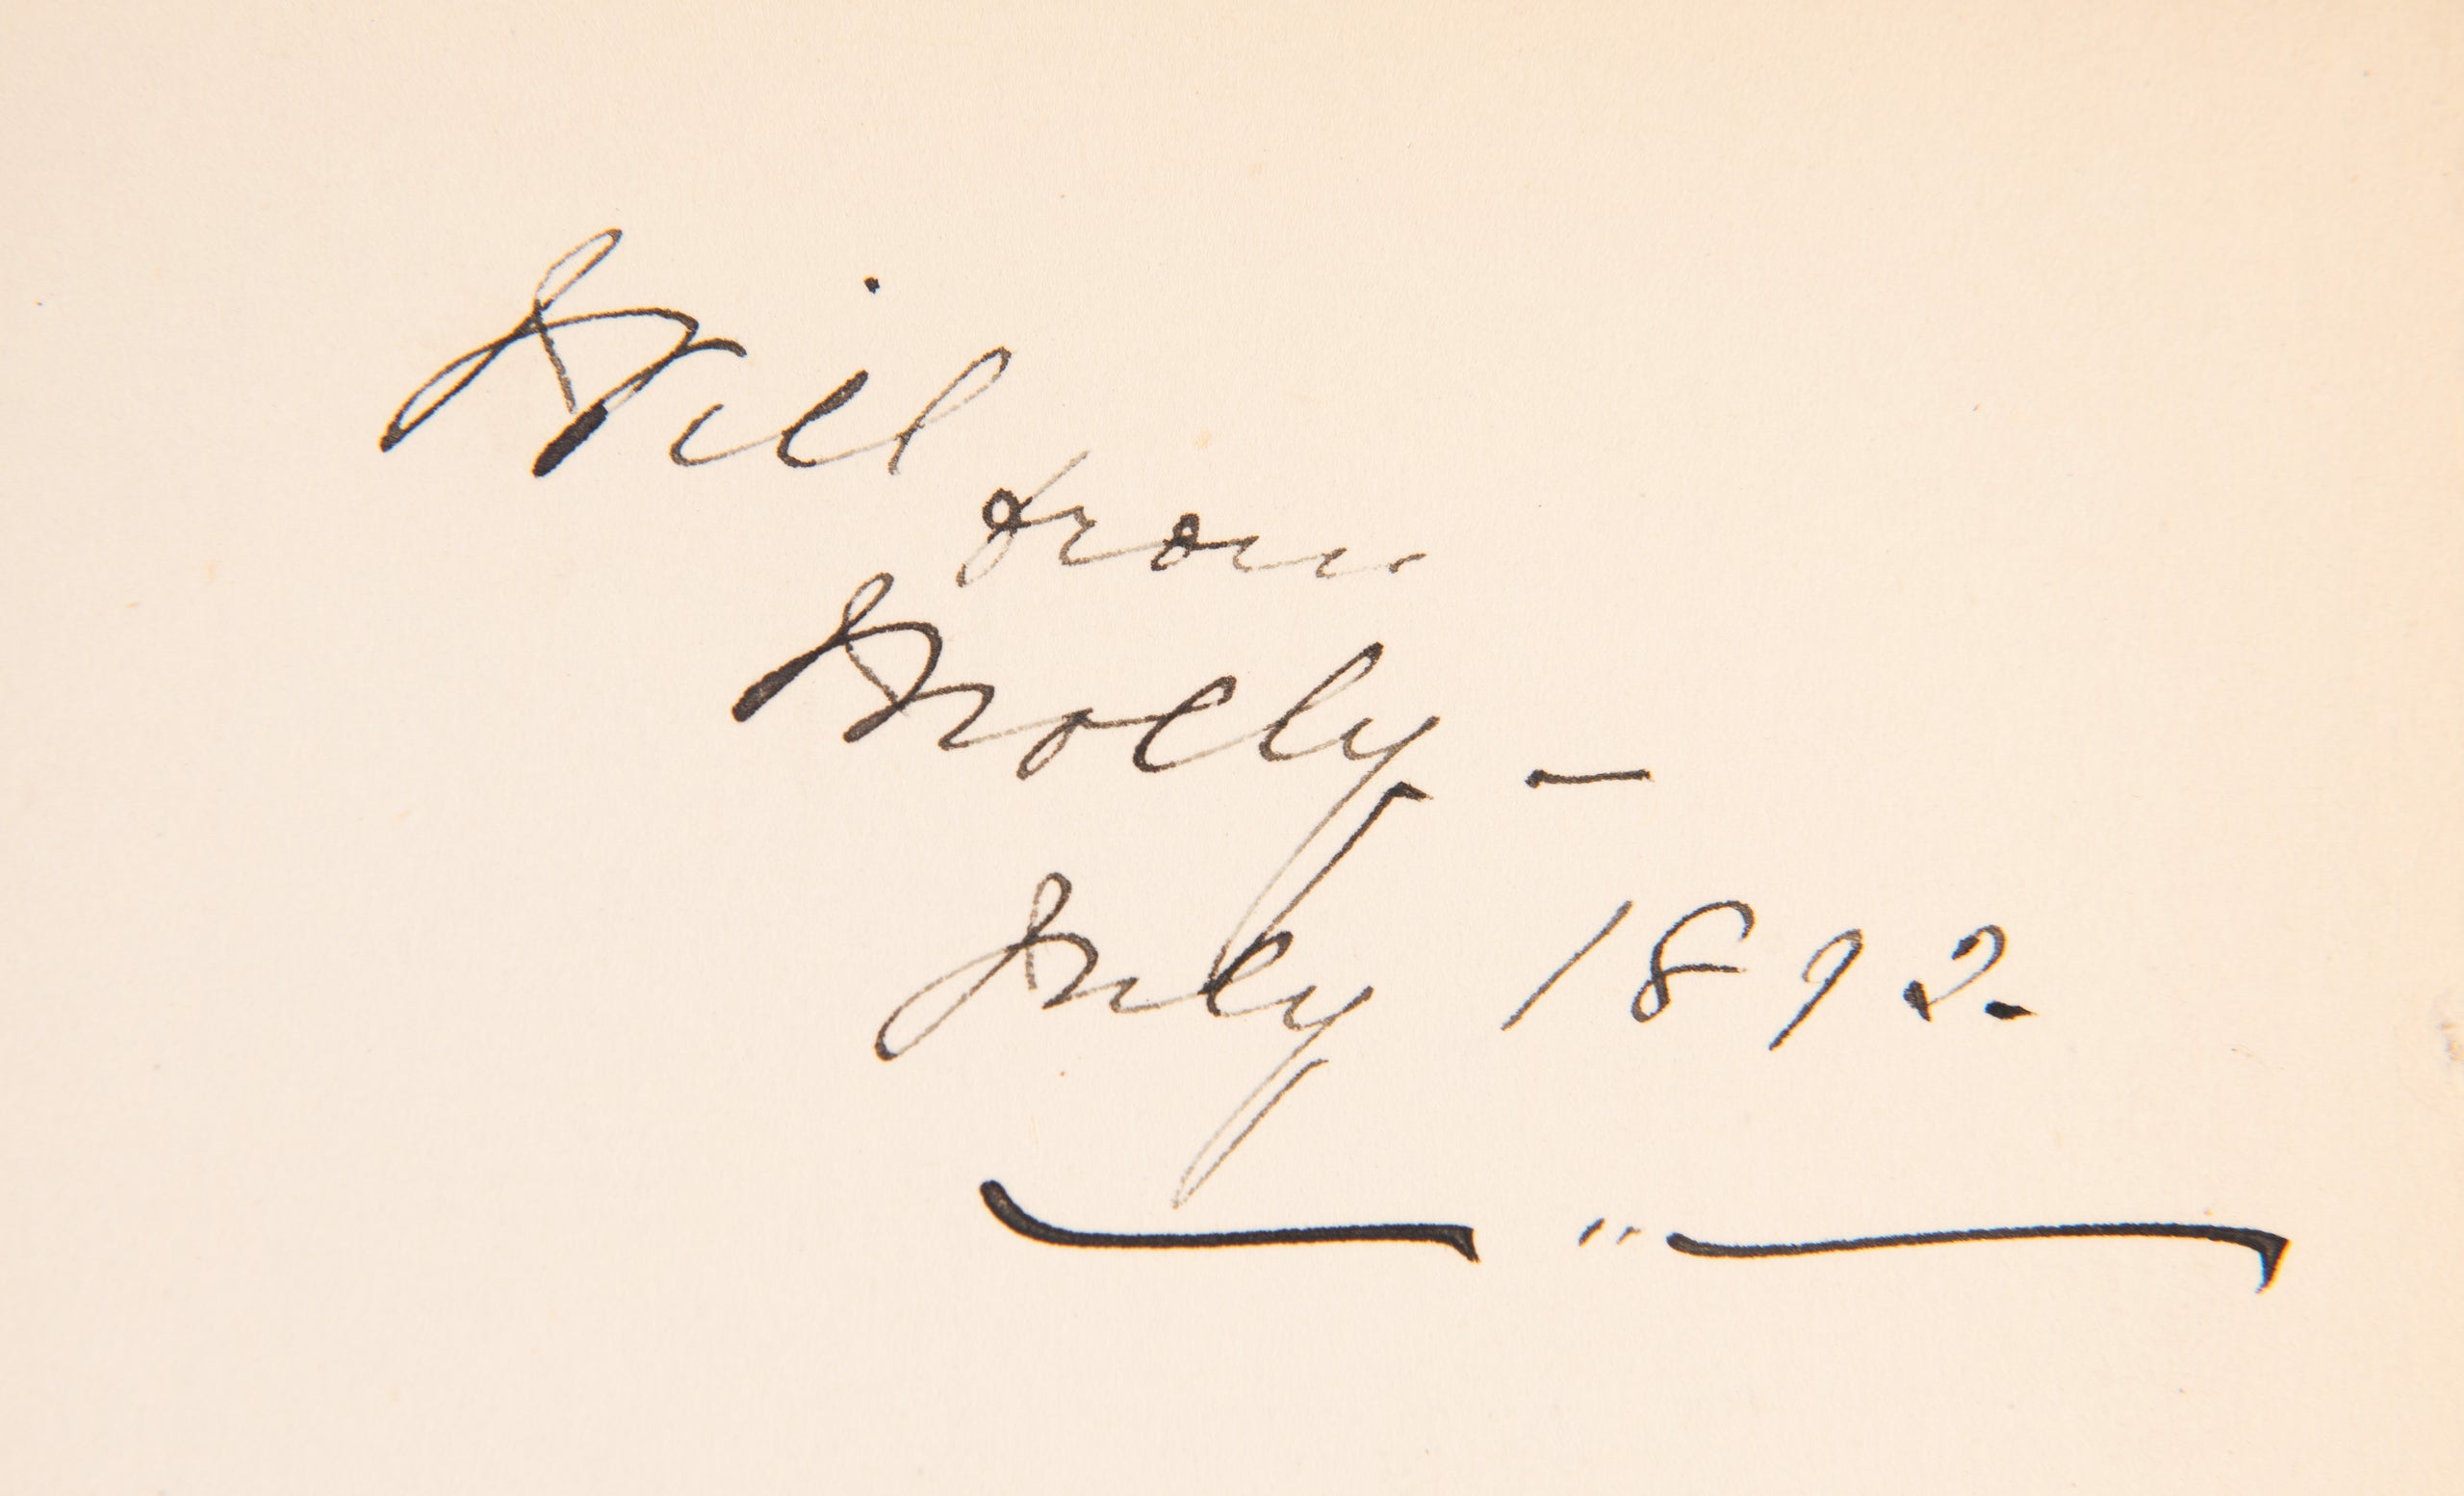 Will
from
Molly –
July 1892.